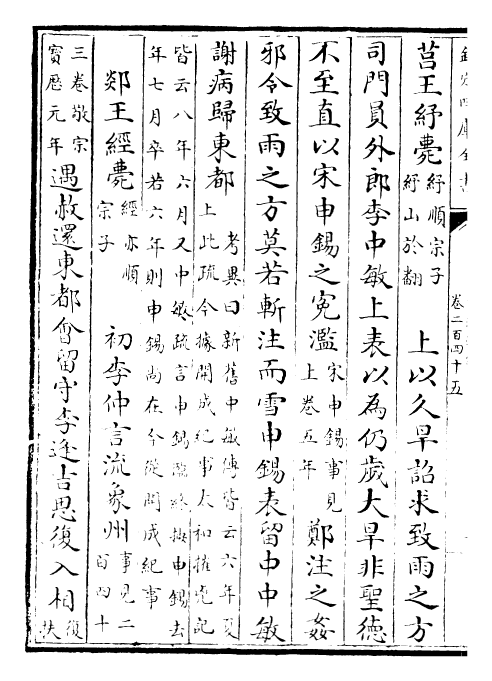 欽定四庫全書
卷二百四十五
莒王紓薨紓順宗子紓山於翻 上以久旱詔求致雨之方
司門員外郎李中敏上表以為仍歲大旱非聖德
不至直以宋申錫之寃濫宋申錫事見上卷五年鄭注之姦
邪今致雨之方莫若斬注而雪申錫表留中中敏
謝病歸東都考異曰新舊中敏傳皆云六年夏上此疏今據開成紀事太和摧兇記
皆云八年六月又中敏疏言申錫臨終按申錫去年七月卒若六年則申錫尚在今從開成紀事
郯王經薨經亦順宗子 初李仲言流象州事見二百四十
三卷敬宗寶歷元年遇赦還東都會留守李逢吉思復入相復扶